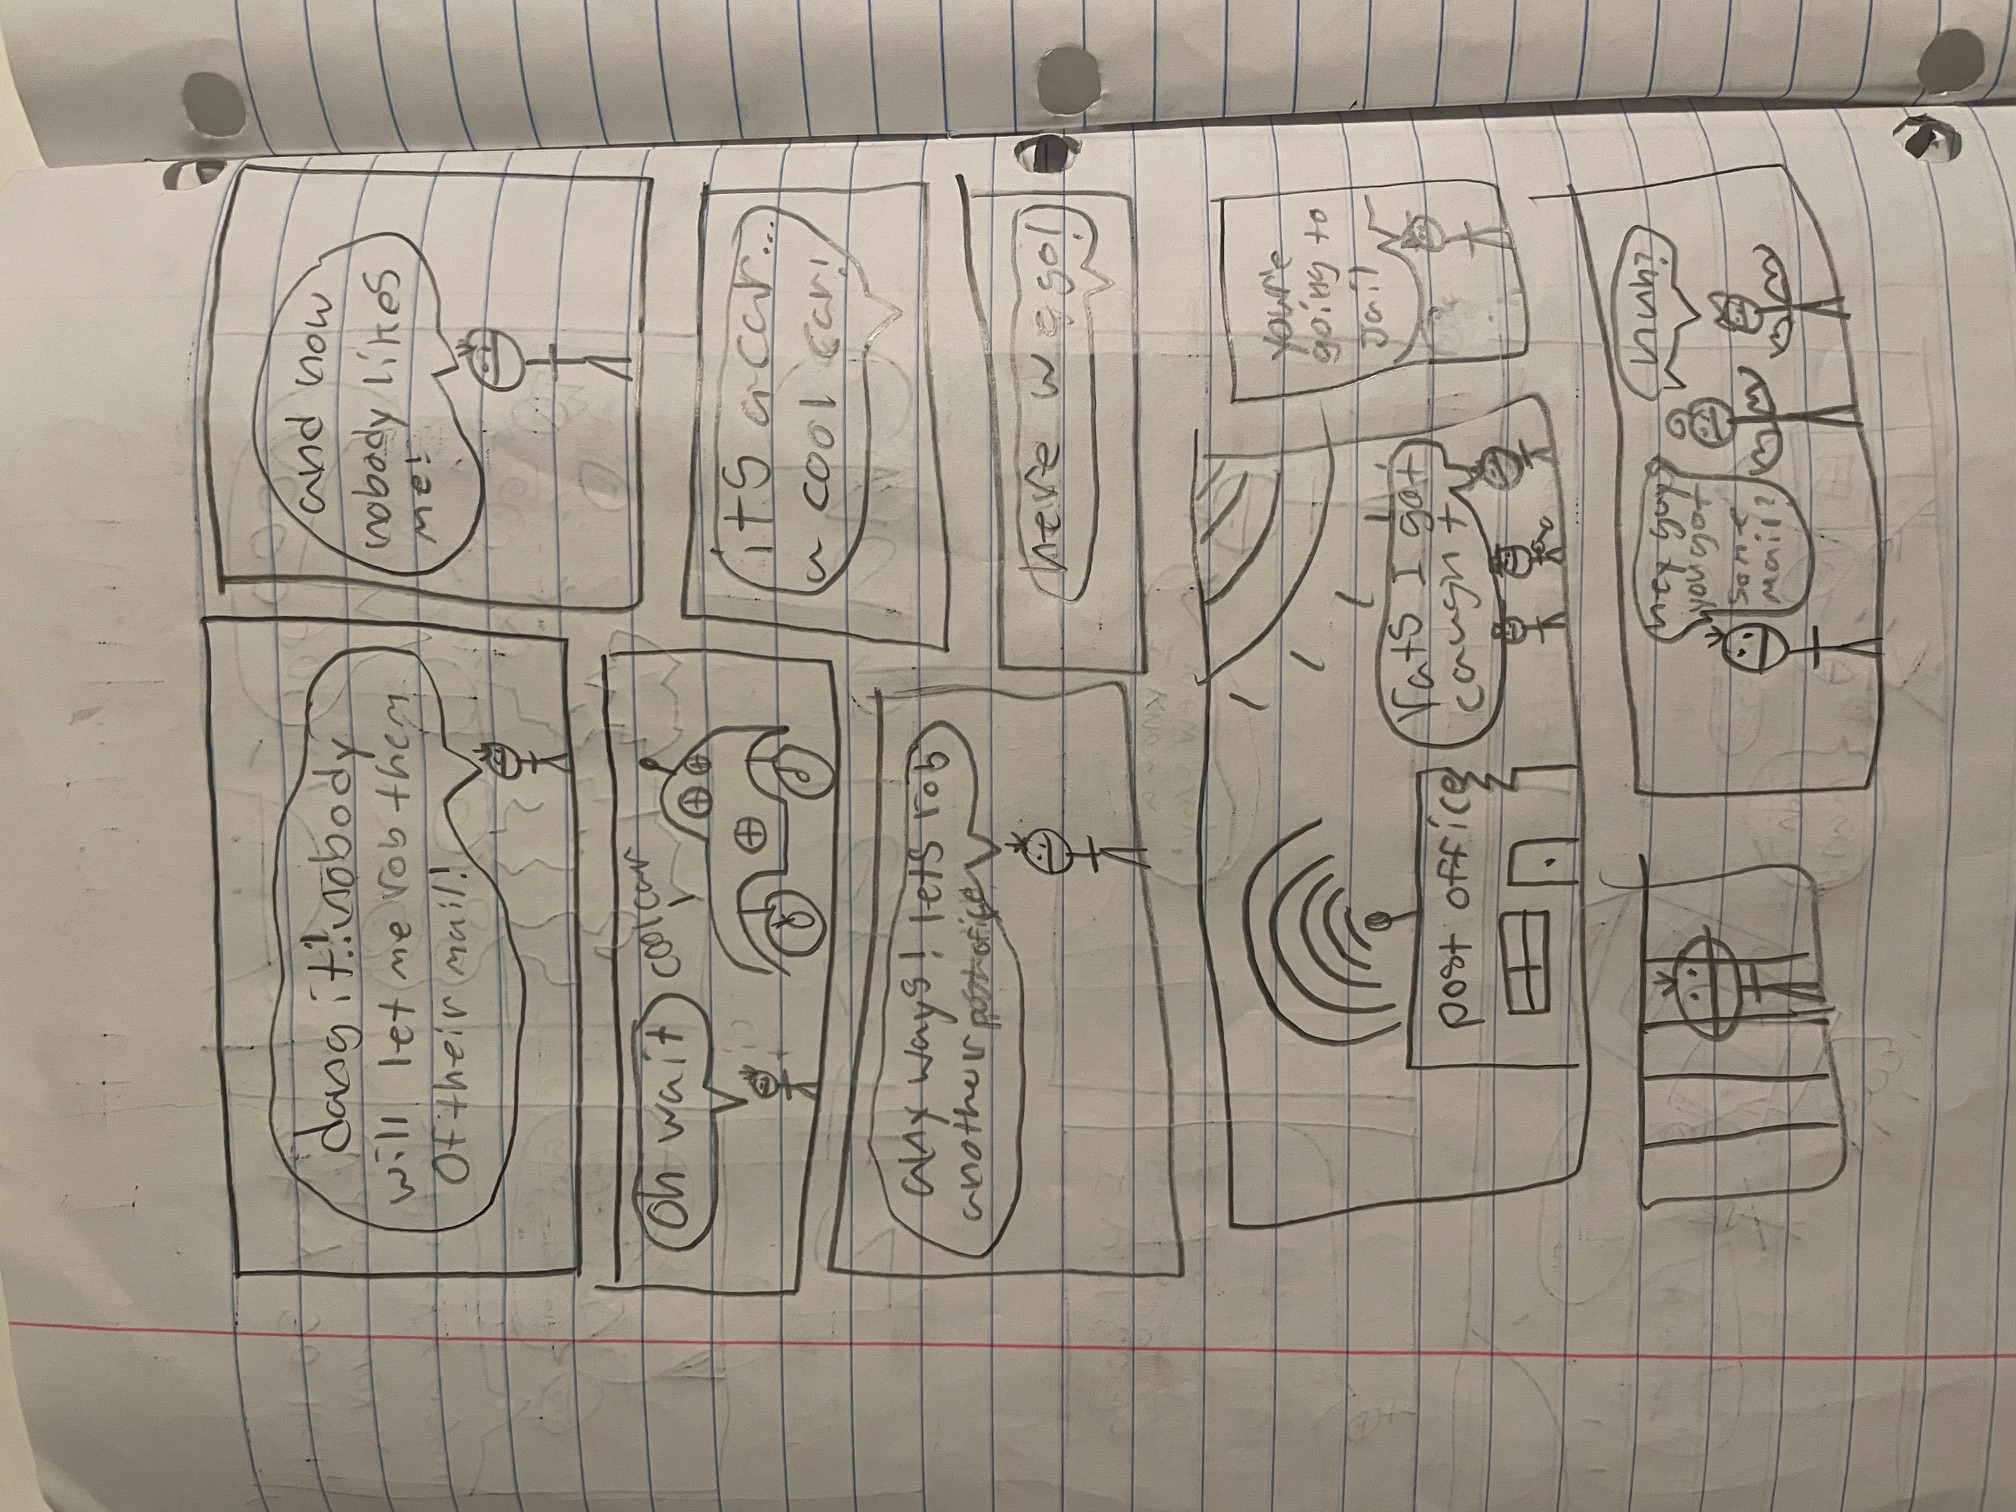 dang it! nobody
will let me rob them
of their mail!
and now
nobody likes
me!
oh wait
its a car...
a cool car!
any ways! lets rob
another post office
here w ggo!
post office
rats I got
caught
your'e
going to
jail
hey guys
you got
some
mail?
huh?